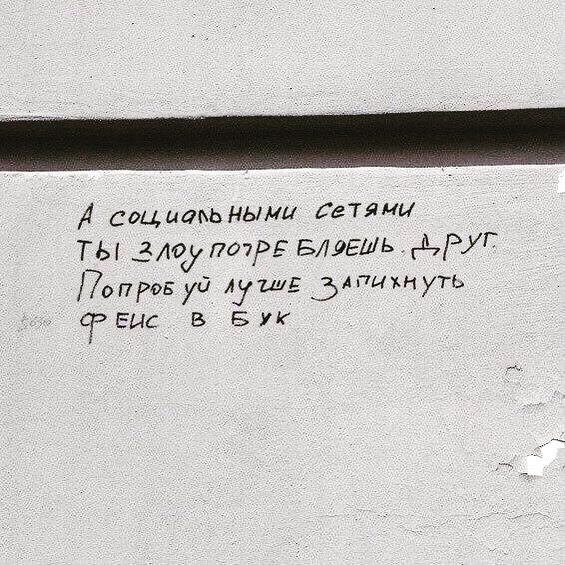 А социальными сетями
ты злоупотребляешь. друг.
Попробуй лучше запихнуть
феис в бук